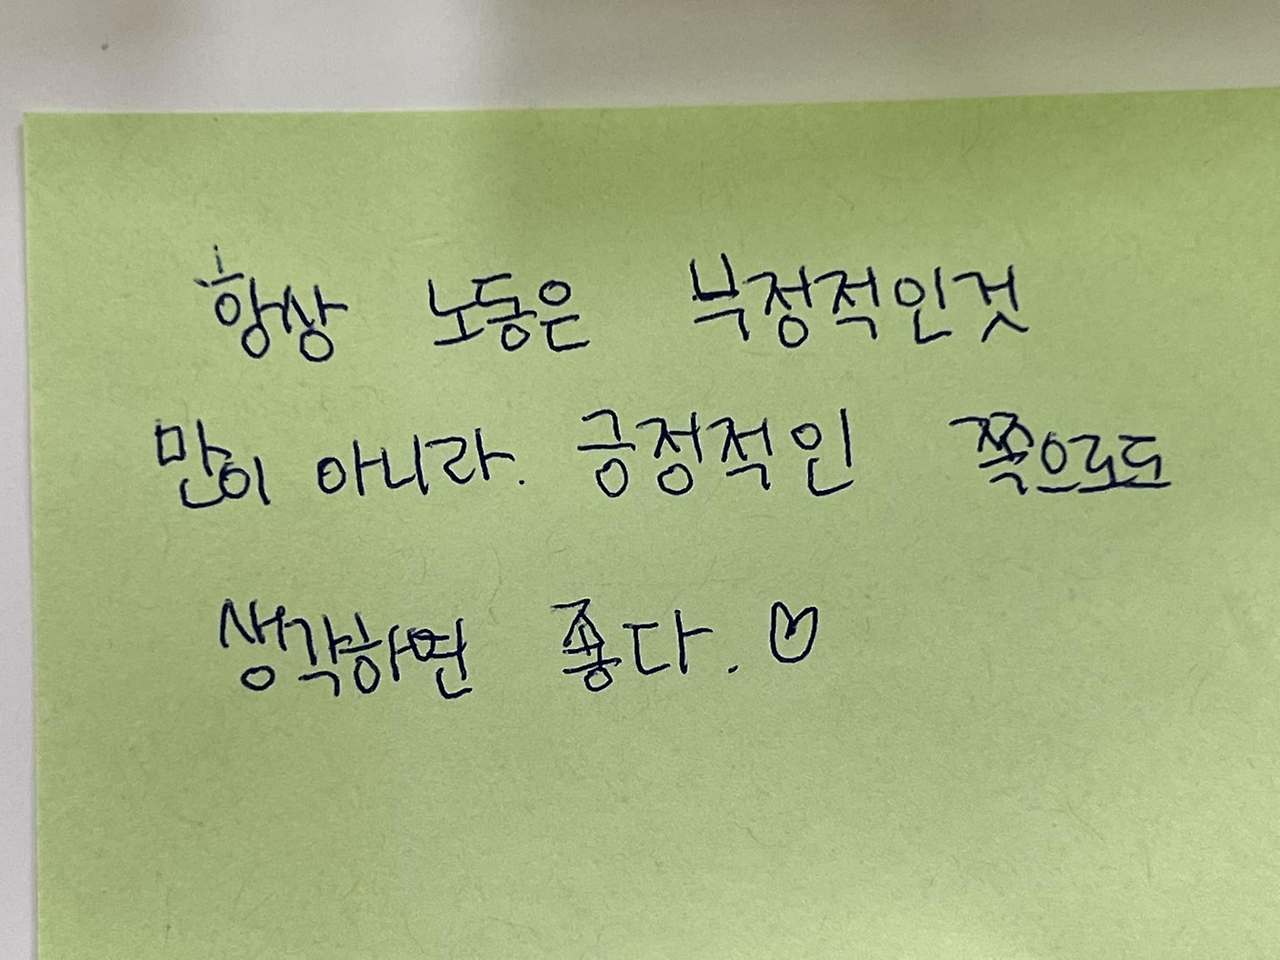 항상 노동은 부정적인것
만이 아니라. 긍정적인 쪽으로도
생각하면 좋다. ♡